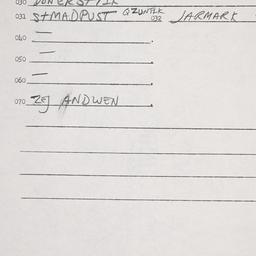 030 DONERSTYIK
031 StMADPUST QZUNTLK 032 JARMARK
040 —
050 —
060 —
070 ZEJ ANDWEN